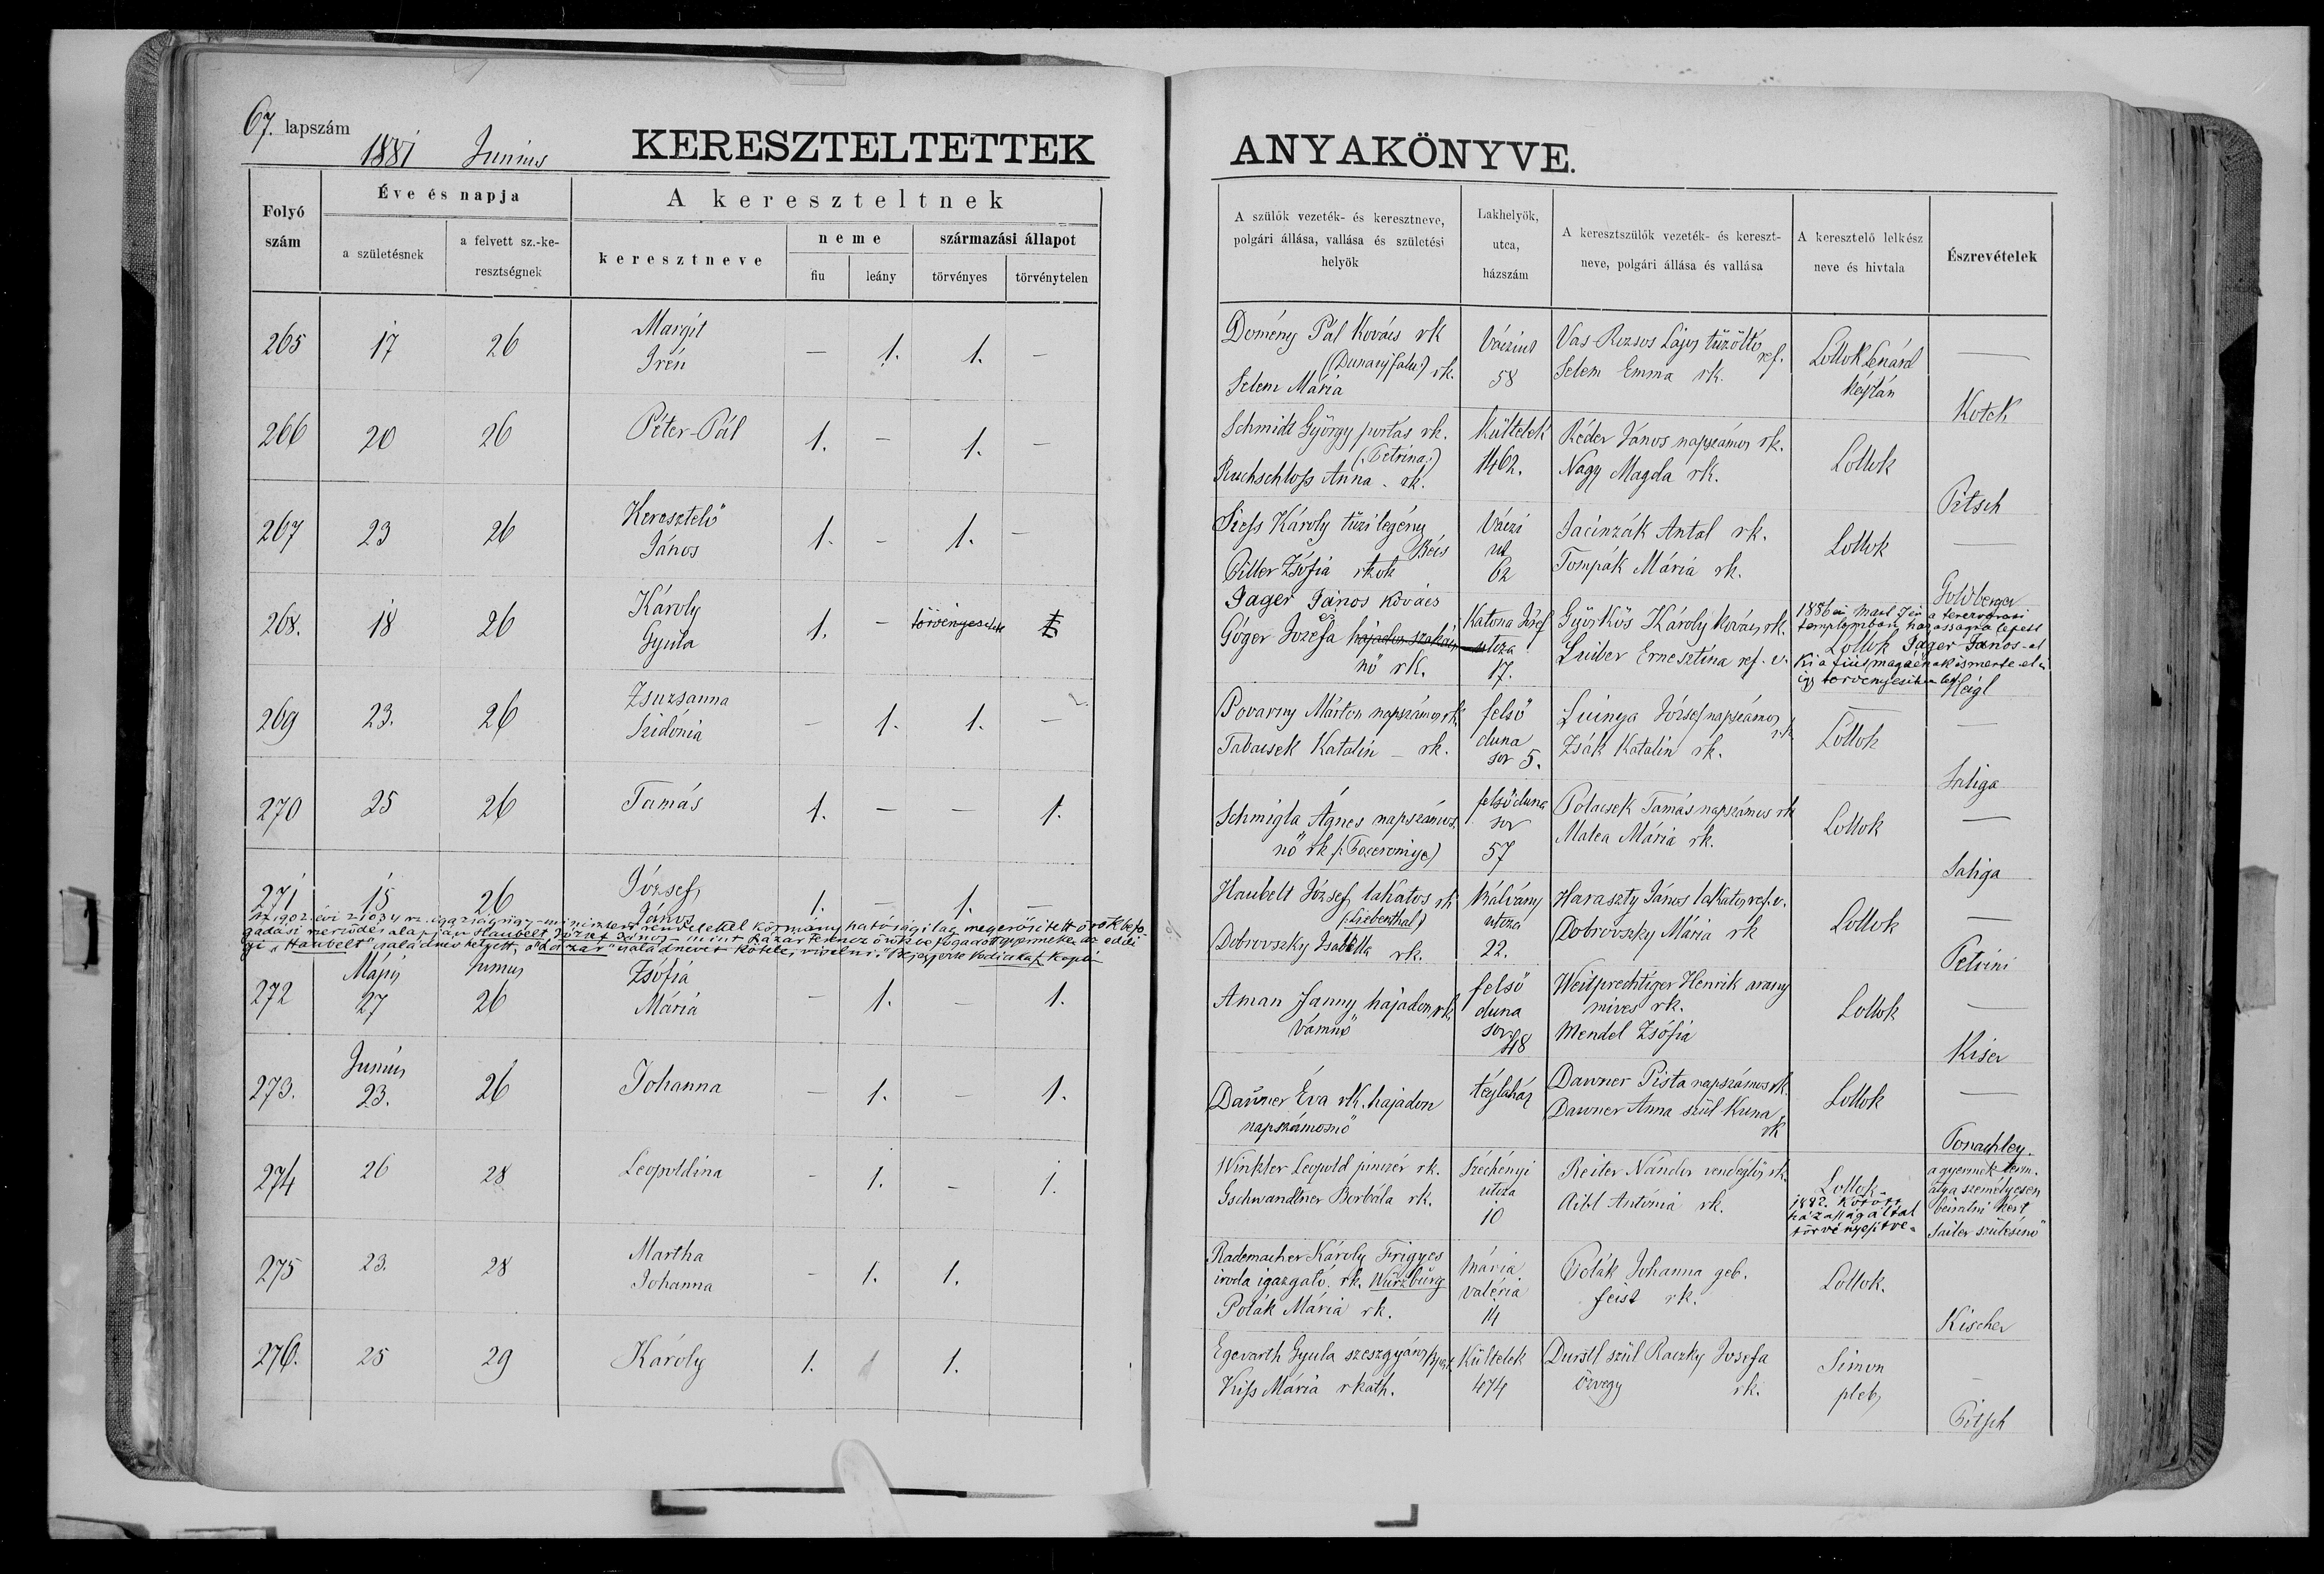 67. lapszám
1881 Junius
KERESZTELTETTEK
ANYAKÖNYVE.
Folyó szám
Éve és napja
a születésnek
a felvett sz.-ke-
resztségnek
A kereszteltnek
keresztneve
neme
fiu
leány
származási állapot
törvényes
törvénytelen
A szülők vezeték- és keresztneve,
polgári állása, vallása és születési
helyök
Lakhelyök,
utca,
házszám
A keresztszülők vezeték- és kereszt-
neve, polgári állása és vallása
A keresztelő lelkész
neve és hivtala
Észrevételek
265 17 26 Margit
Irén
— 1. 1. —
Domény Pál Kovács rk
(Dunanjfalu) rk.
Selem Mária
58
Vas-Rozsos Lajos tűzöltó ref.
Selem Emma rk.
Lollok Lénárd
káplán
—
Kotek
266 20 26 Péter-Pál 1. — 1. —
Schmidt György portás rk.
(Petrina)
Ruchschloss Anna rk.
Kültelek
1462.
Réder János napszámos rk.
Nagy Magda rk.
Lollok
Pitsch
267 23 26 Keresztelő
János
1. — 1. —
Siess Károly tűzi legény
Bécs
Pitter Zsófia rkok
Váczi
ut
62
Jacinzák Antal rk.
Tompák Mária rk.
Lollok
—
Goldberger
268. 18 26 Károly
Gyula
1. —
Jager János Kovács
Góger Jozefa hajadon szakács
nő rk.
Katona József
utcza
17.
Györkös Károly Kovács rk.
Luiber Ernesztina ref. v.
Lollok Jager János-el
ki a fiut magáénak ismerte el s
így törvényesitve lett
Heigl
269 23. 26 Zsuzsanna
Szidónia
— 1. 1. —
Povarny Márton napszámos rk.
Tabacsek Katalin — rk.
felső
duna
sor 5.
Luinya József napszámos rk
Zsák Katalin rk.
Lollok
—
Saliga
270 25 26 Tamás 1. — — 1.
Schmigla Ágnes napszámos
nő rk
felső duna
sor
57
Polacsek Tamás napszámos rk
Malea Mária rk.
Lollok
—
Saliga
271 15 26 József
János
1. — 1. —
Haubelt József lakatos rk
(Liebenthal)
Dobrovszky Izabella rk.
Bálvány
utcza
22.
Haraszty János lakatos ref. v.
Dobrovszky Mária rk
Lollok
—
Petrini
Az 1902. évi 21034 sz. igazságügy-miniszteri rendelettel kormányhatóságilag megerősitett örökbefo-
gadási szerződés alapján Haubelt József János mint Lázár Ferencz örökbe fogadott gyermeke az eddi-
gi "Haubelt" családnév helyett, a "Lázár" családnevet köteles viselni.
272 Május
27
Junius
26
Zsófia
Mária
— 1. — 1.
Aman Fanny hajadon, rk.
felső
duna
sor
48
Weitprechtiger Henrik arany
míves rk.
Mendel Zsófia
Lollok
—
Kiser
273. Junius
23.
26 Johanna — 1. — 1.
Dauner Éva rk. hajadon
napszámosnő
téglaház
Dauner Pista napszámos rk.
Dauner Anna szül Kuna
rk
Lollok
—
274 26 28 Leopoldina — 1. — 1.
Winkler Leopold pinczér rk.
Gschwandtner Borbála rk.
Széchényi
utcza
10
Reiter Nándor vendéglős rk.
Aibl Antónia rk.
Lollok
1882. kötött
házasság által
törvényesitve.
a gyermek term.
atyja személyesen
beiratni kért
Sailer szülésznő
275 23. 28 Martha
Johanna
— 1. 1.
Rademacher Károly Frigyes
iroda igazgató. rk. Würzburg
Polák Mária rk.
Mária
valéria
14
Polák Johanna geb.
Feist rk.
Lollok.
Kischer
276. 25 29 Károly 1. 1.
Egevarth Gyula szeszgyáros
Kiss Mária rkath.
Kültelek
474
Durstl szül Raczky Josefa
özvegy rk.
Simon
pleb,
—
Pitsch